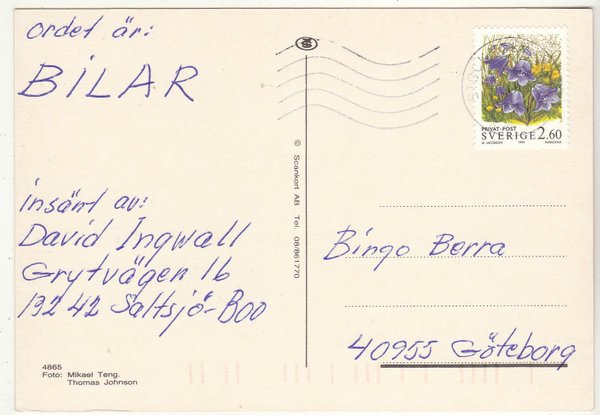 ordet är:
BILAR
insänt av:
David Ingwall
Grytvägen 16
132 42 Saltsjö-Boo
4865
Foto: Mikael Teng.
Thomas Johnson
© Scankort AB Tel. 08/861770
PRIVAT-POST
SVERIGE 2.60
Bingo Berra
40955 Göteborg